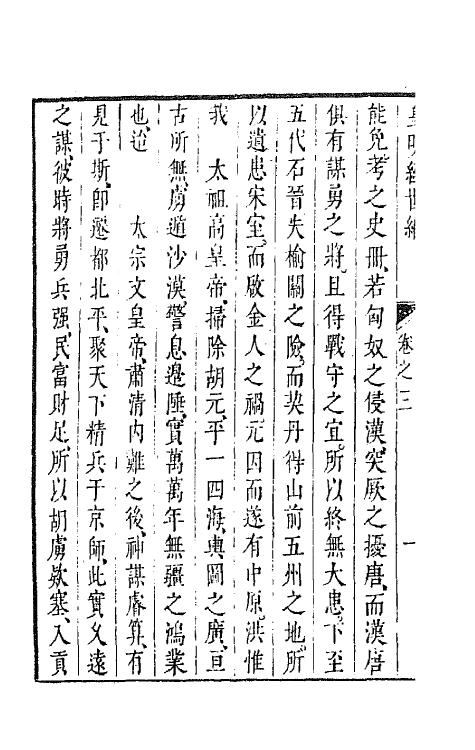 皇明經世編 卷之三 一
能免、考之史冊、若匈奴之侵漢、突厥之擾唐、而漢唐
俱有謀勇之將、且得戰守之宜、所以終無大患、下至
五代石晉失榆關之險、而契丹得山前五州之地、所
以遺患宋室、而啟金人之禍、元因而遂有中原、洪惟
我 太祖高皇帝、掃除胡元、平一四海、輿圖之廣、亘
古所無、虜遁沙漠、警息邊陲、實萬萬年無疆之鴻業
也、迨 太宗文皇帝、肅清內難之後、神謀睿算、有
見于斯、即遷都北平、聚天下精兵于京師、此實久遠
之謀、彼時將勇兵强、民富財足、所以胡虜欵塞、入貢